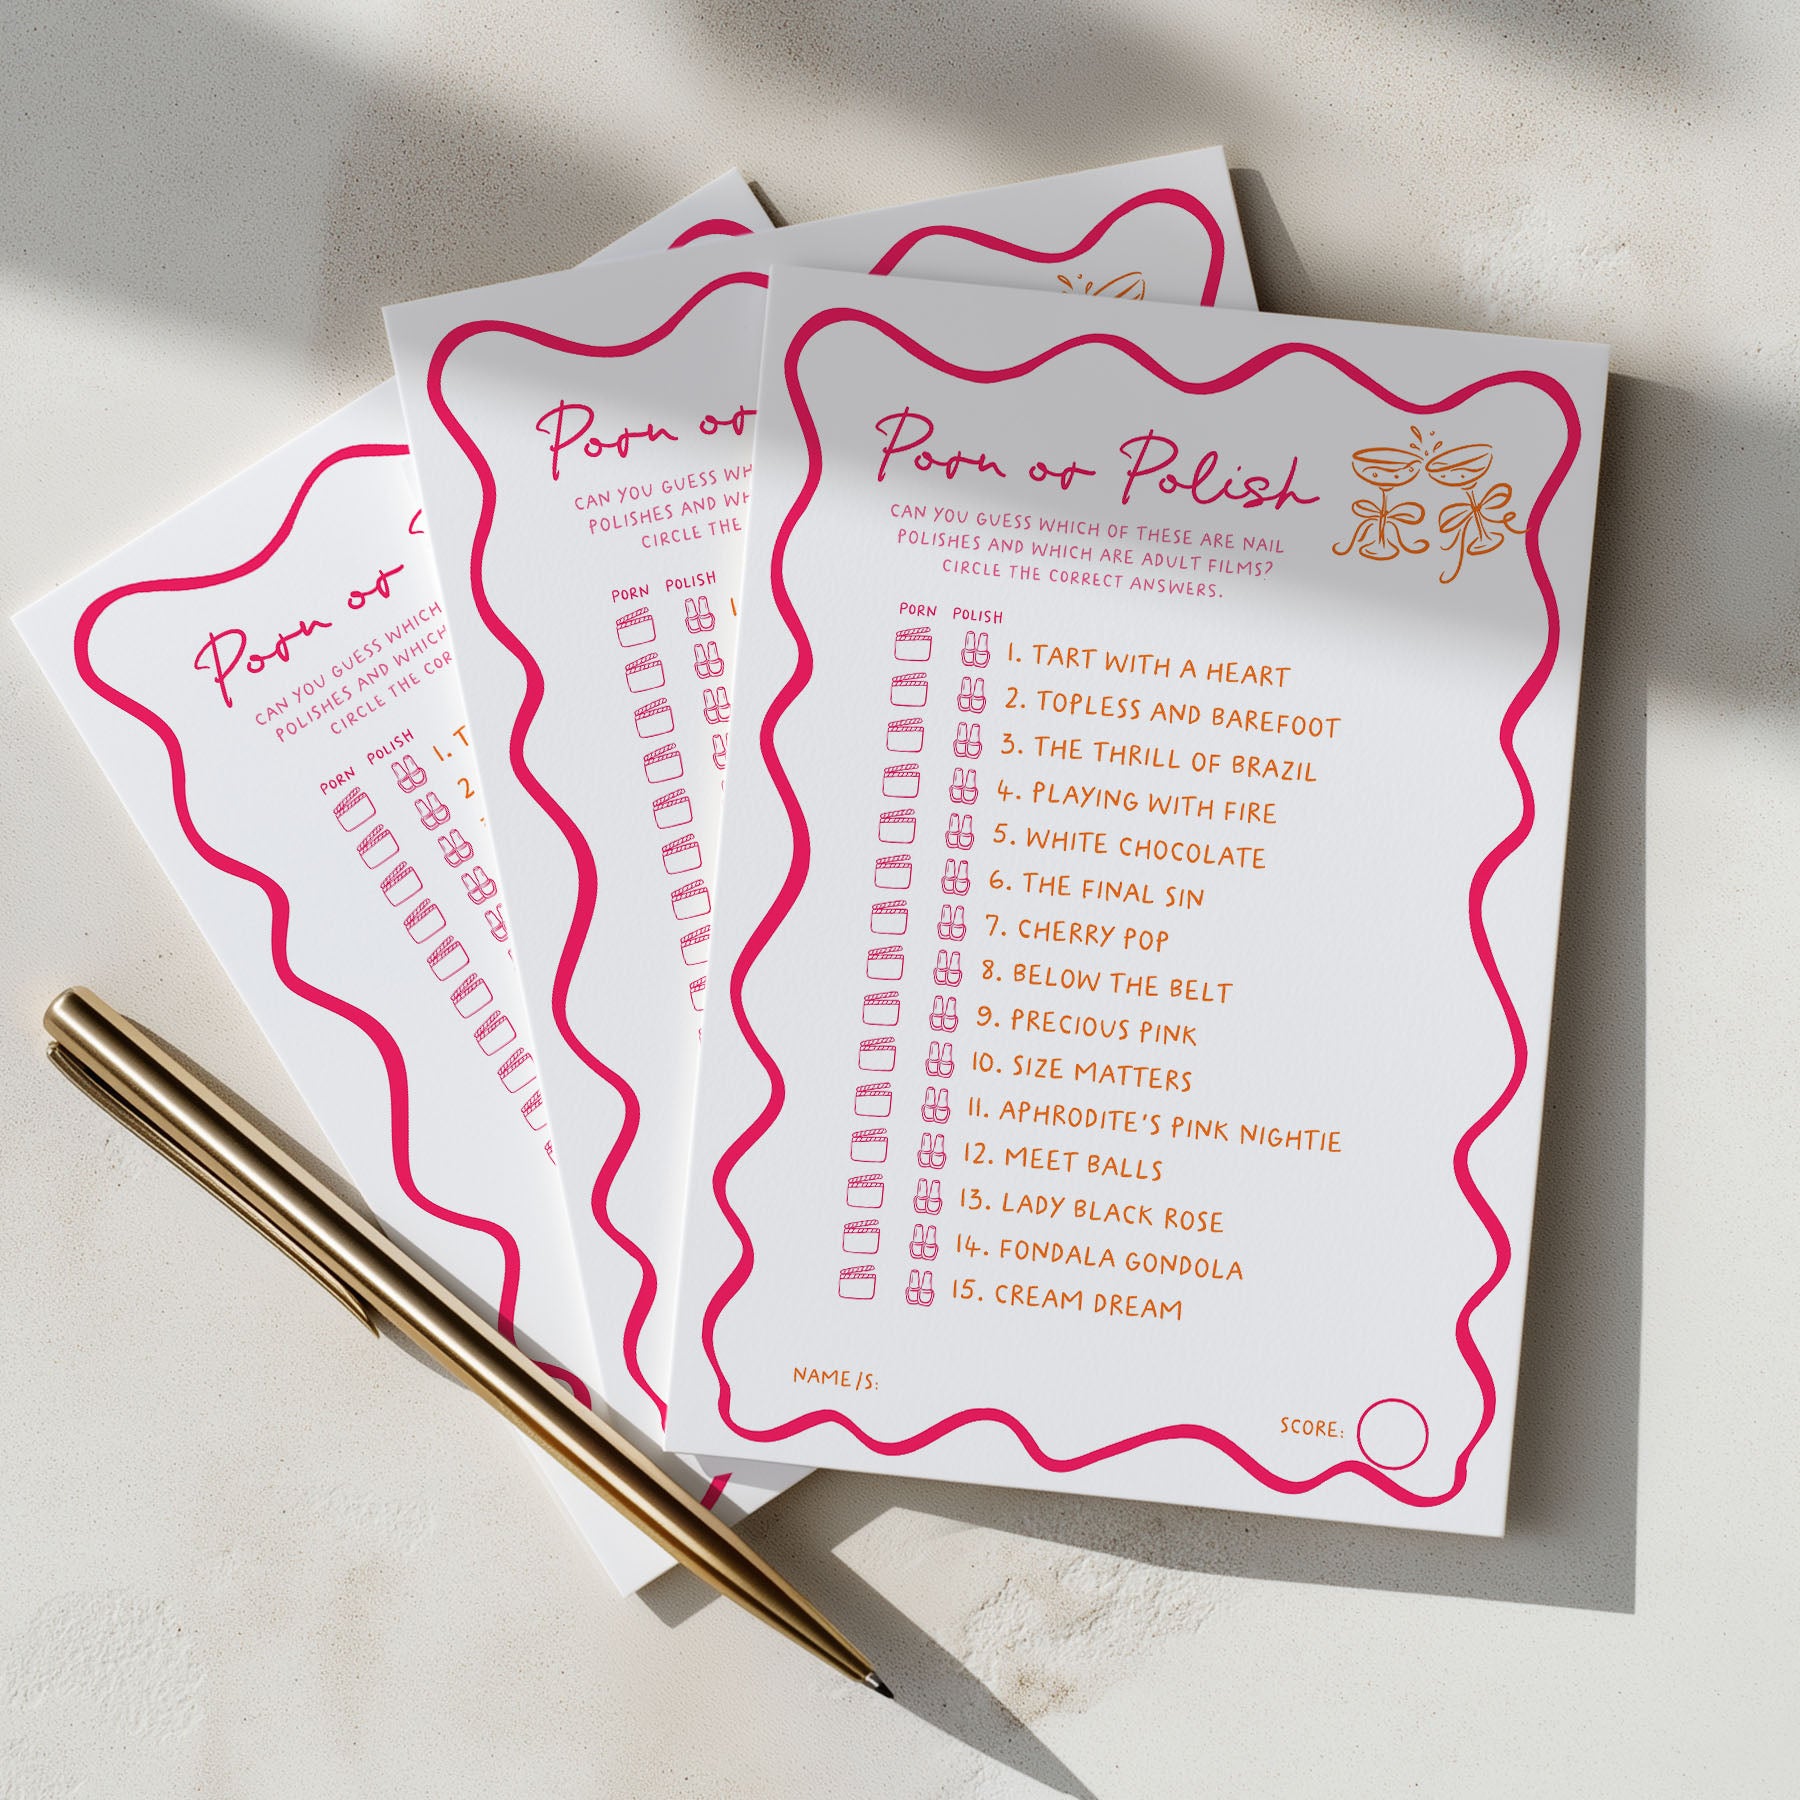 Porn or
CAN YOU GUESS WHICH
POLISHES AND WHICH
CIRCLE THE COR
PORN POLISH
1. T
2
Porn or
CAN YOU GUESS WH
POLISHES AND WH
CIRCLE THE
PORN POLISH
1.
Porn or Polish
CAN YOU GUESS WHICH OF THESE ARE NAIL
POLISHES AND WHICH ARE ADULT FILMS?
CIRCLE THE CORRECT ANSWERS.
PORN POLISH
1. TART WITH A HEART
2. TOPLESS AND BAREFOOT
3. THE THRILL OF BRAZIL
4. PLAYING WITH FIRE
5. WHITE CHOCOLATE
6. THE FINAL SIN
7. CHERRY POP
8. BELOW THE BELT
9. PRECIOUS PINK
10. SIZE MATTERS
11. APHRODITE'S PINK NIGHTIE
12. MEET BALLS
13. LADY BLACK ROSE
14. FONDALA GONDOLA
15. CREAM DREAM
NAME/S:
SCORE: